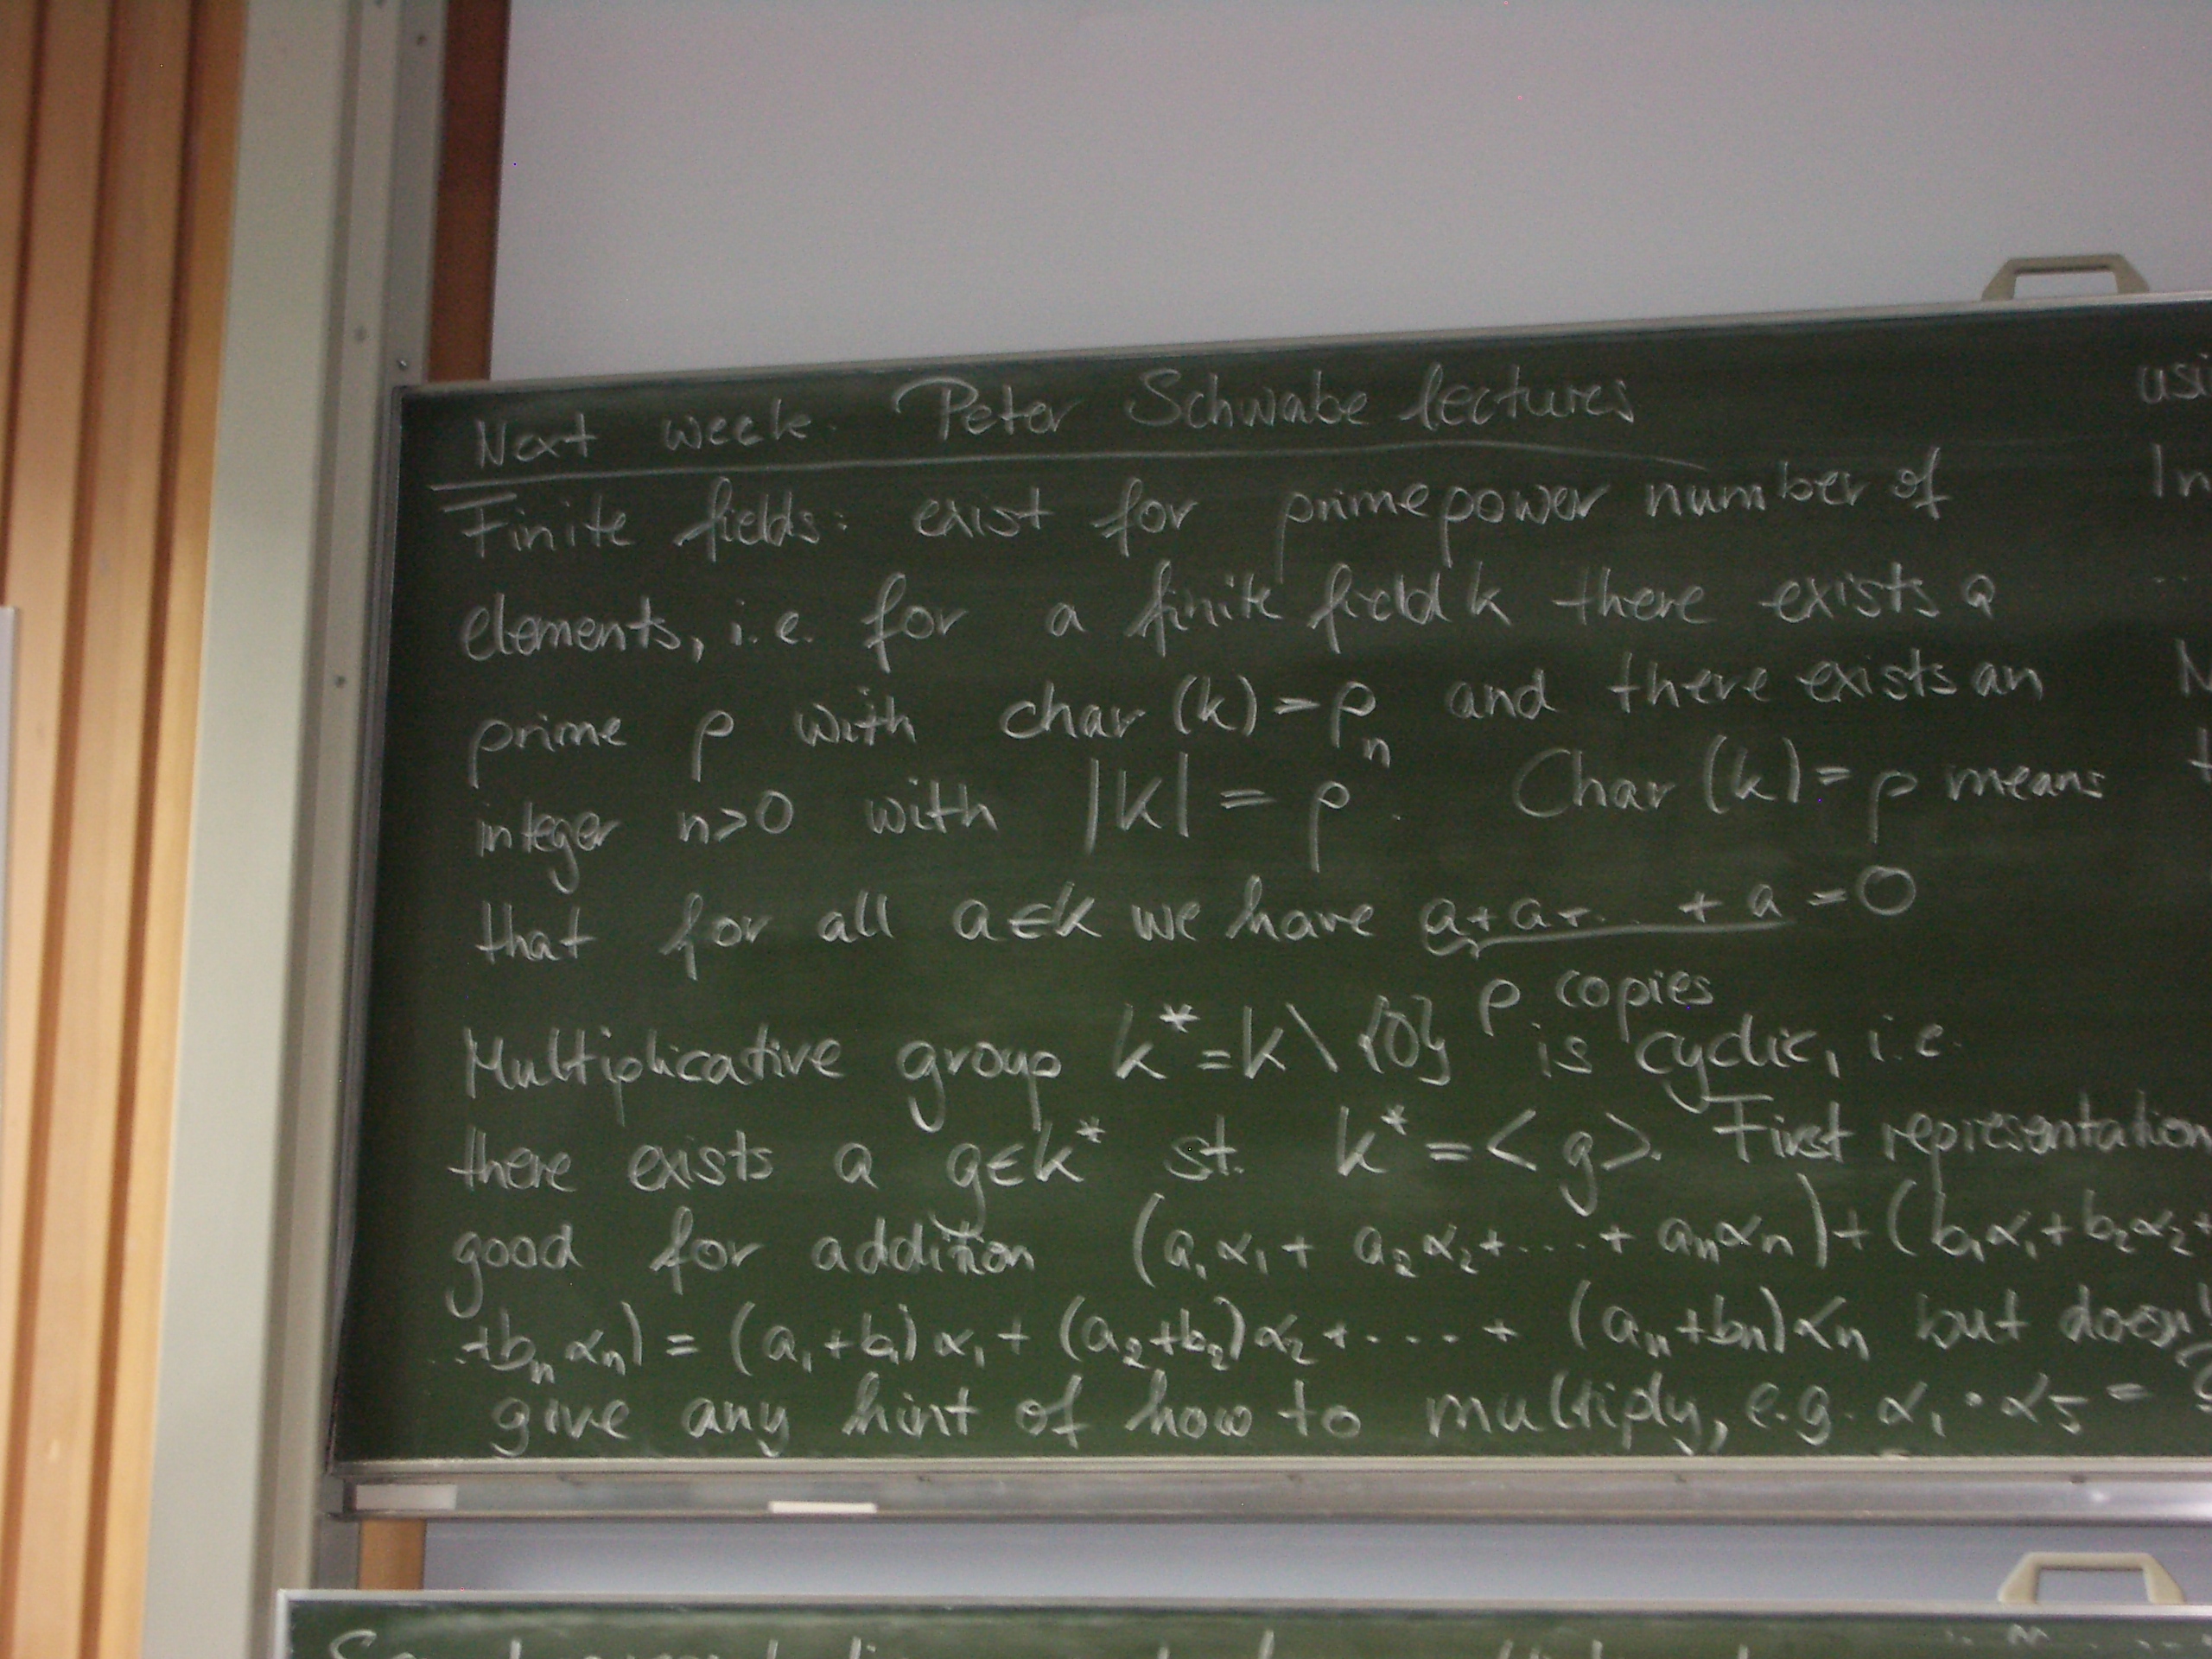 Next week Peter Schwabe lectures
Finite fields: exist for prime power number of
elements, i.e. for a finite field k there exists a
prime p with char (k) = p and there exists an
integer n>0 with |k| = pⁿ. Char (k) = p means
that for all a∈k we have a+a+...+a = 0
p copies
Multiplicative group k* = k \ {0} is cyclic, i.e.
there exists a g∈k* st. k* = <g>. First representation
good for addition (a₁α₁+ a₂α₂+...+ aₙαₙ)+(b₁α₁+b₂α₂+
..+bₙαₙ) = (a₁+b₁)α₁+(a₂+b₂)α₂+....+ (aₙ+bₙ)αₙ but doesn't
give any hint of how to multiply, e.g. α₁·α₅ =